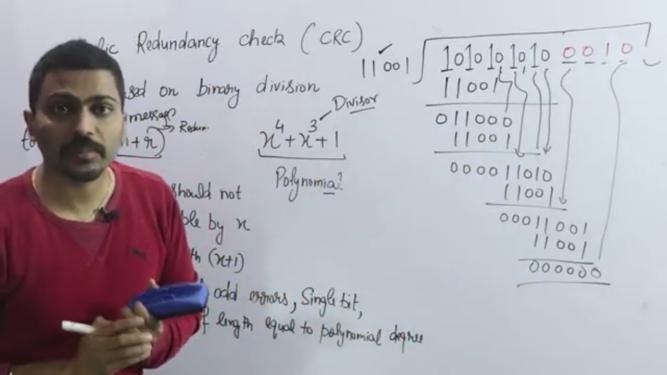 lic Redundancy check (CRC)
sed on binary division
message
Redun
x⁴+x³+1
Divisor
Polynomial?
should not
ble by x
th (x+1)
odd errors, Single bit,
f length equal to polynomial degree
11001 ✓
1010101010 0010
11001
011000
11001
000011010
11001
00011001
11001
000000